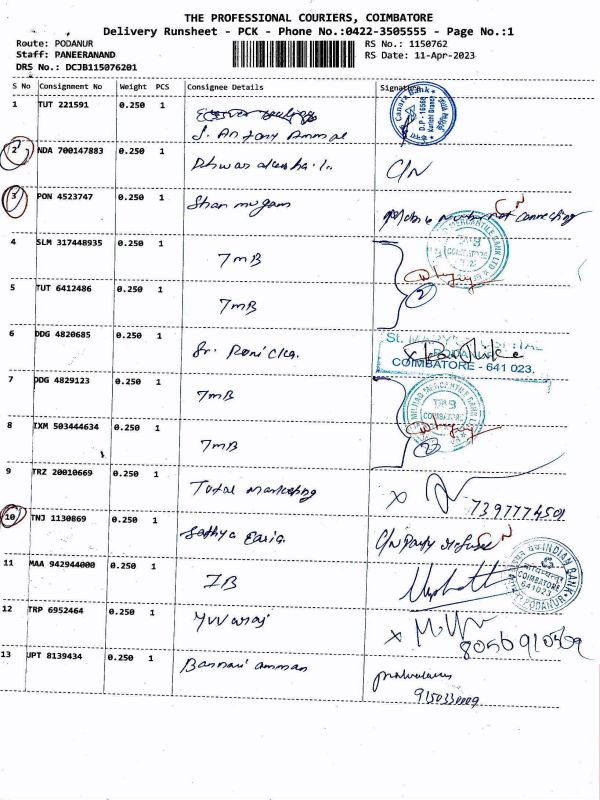 THE PROFESSIONAL COURIERS, COIMBATORE
Delivery Runsheet - PCK - Phone No.:0422-3505555 - Page No.:1
Route: PODANUR
RS No.: 1150762
Staff: PANEERANAND
RS Date: 11-Apr-2023
DRS No.: DCJB115076201
S No Consignment No Weight PCS Consignee Details Signature
1 TUT 221591 0.250 1
J. Antony Ammal
Canara Bank
2 NDA 700147883 0.250 1 C/N
3 PON 4523747 0.250 1 Shanmugam Mobile Number not connecting
CN
4 SLM 317448935 0.250 1 TMB
COIMBATORE
5 TUT 6412486 0.250 1 TMB
2
6 DDG 4820685 0.250 1 Sr. Ronicka.
St. MARY'S HOSPITAL
PODANUR
COIMBATORE - 641 023.
7 DDG 4829123 0.250 1 TMB
COIMBATORE
8 IXM 503444634 0.250 1 TMB
9 TRZ 20010669 0.250 1 Total marketing X
7397774501
10 TNJ 1130869 0.250 1 Sathya C/N Party refuse
CN
11 MAA 942944000 0.250 1 IB
INDIAN BANK
COIMBATORE
641023
PODANUR
12 TRP 6952464 0.250 1 Yuvaraj X
13 UPT 8139434 0.250 1 Bannari amman